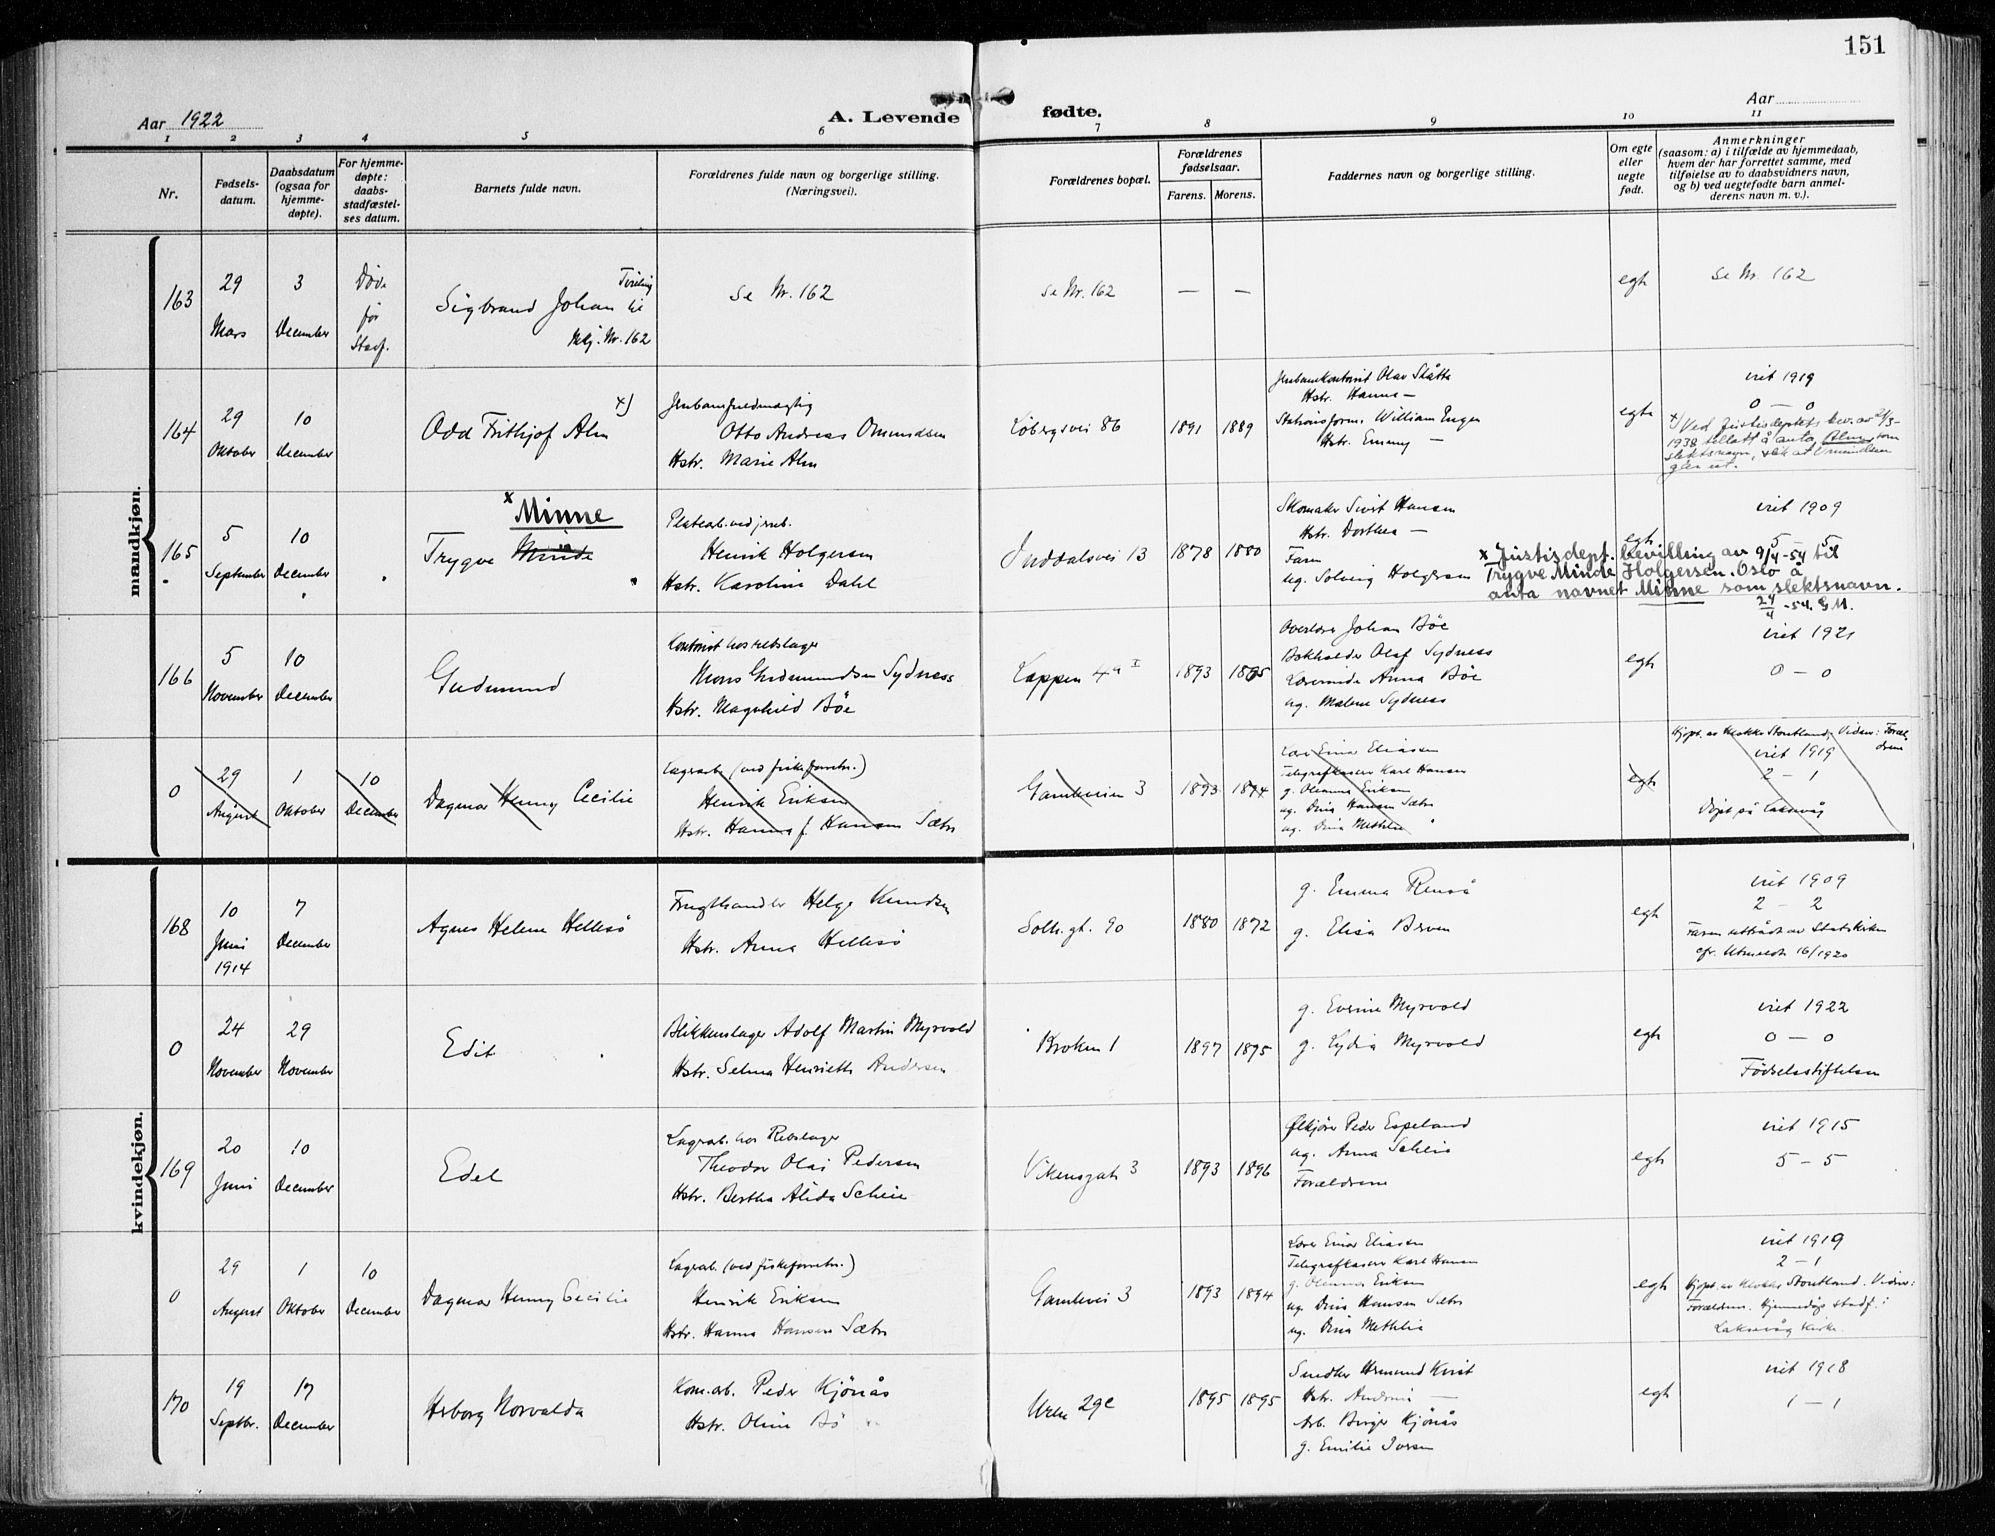 151
Aar 1922
A. Levende fødte.
Aar
1 2 3 4 5 6 7 8 9 10 11
Nr.
Fødsels-
datum.
Daabsdatum
(ogsaa for
hjemme-
døpte).
For hjemme-
døpte:
daabs-
stadfæstel-
ses datum.
Barnets fulde navn.
Forældrenes fulde navn og borgerlige stilling.
(Næringsvei).
Forældrenes bopæl.
Forældrenes
fødselsaar.
Farens. Morens.
Faddernes navn og borgerlige stilling.
Om egte
eller
uegte
født.
Anmerkninger
(saasom: a) i tilfælde av hjemmedaab,
hvem der har forrettet samme, med
tilføielse av to daabsvidners navn,
og b) ved uegtefødte barn anmel-
derens navn m. v.).
mandkjøn.
163
29
Mars
3
December
Døde
før
Stadf.
Sigbrand Johan
Tvilling
til
Mkj. Nr. 162
se Nr. 162
se Nr. 162
— —
egte
se Nr. 162
164
29
Oktober
10
December
x)
Odd Frithjof Alm
Jernbanefuldmægtig
Otto Andreas Omundsen
Hstr. Marie Alm
Løbergsvei 86
1891 1889
Jernbanekontorist Olav Slåtta
Hstr. Hanna —
Stationsform. William Enger
Hstr. Emmy —
egte
viet 1919
0 — 0
x) Ved Justisdeptets bev. av
1938 tillatt å anta Alm som
slektsnavn, slik at Omundsen
går ut.
165
5
September
10
December
x Minne
Trygve Minde
Platearb. ved jernb.
Henrik Holgersen
Hstr. Karoline Dahl
Inddalsvei 13
1878 1880
Skomaker Sivert Hansen
Hstr. Dorthea —
Faren
ug. Solveig Holgersen
egte
viet 1909
5 — 5
x Justisdept. bevilling av 9/4-54 til
Trygve Minde Holgersen. Oslo å
anta navnet Minne som slektsnavn.
24/4 -54. G.M.
166
5
November
10
December
Gudmund
Kontorist hos rebslager
Mons Gudmundsen Sydness
Hstr. Magnhild Böe
Lappen 4a I
1893 1895
Overlærer Johan Böe
Bokholder Olaf Sydness
Lærerinde Anna Böe
ug. Malene Sydness
egte
viet 1921
0 — 0
0
29
August
1
Oktober
10
December
Dagmar Henny Cecilie
Lagerarb. (ved fiskeforretn.)
Henrik Eriksen
Hstr. Hanna f. Hansen Sætre
Gamleveien 3
1893 1894
Lærer Einar Eliassen
Telegrafkasserer Karl Hansen
g. Oleanna Eriksen
ug. Dina Hansen Sætre
ug. Dina Methlie
egte
Hjdpt. av Klokker Stoutland, Vidner: Foræl-
drene
viet 1919
2 — 1
Döpt på Laksevåg
kvindekjøn.
168
10
Juni
1914
7
December
Agnes Helene Hellesö
Frugthandler Helge Knudsen
Hstr. Anna Hellesö
Solh. gt. 90
1880 1872
g. Emma Renså
g. Elisa Berven
egte
viet 1909
2 — 2
Faren uttrådt av Statskirken
cfr. Utmeldt 16/1920
0
24
November
29
November
Edit
Blikkenslager Adolf Martin Myrvold
Hstr. Selma Henriette Andersen
Kroken 1
1897 1895
g. Evensine Myrvold
g. Lydia Myrvold
egte
viet 1922
0 — 0
Fødselsstiftelsen
169
20
Juni
10
December
Edel
Lagerarb. hos Rebslager
Theodor Olai Pedersen
Hstr. Bertha Alida Scheie
Vikensgate 3
1893 1896
Ølkjører Peder Espeland
ug. Anna Scheie
Forældrene
egte
viet 1915
5 — 5
0
29
August
1
Oktober
10
December
Dagmar Henny Cecilie
Lagerarb. (ved fiskeforretn.)
Henrik Eriksen
Hstr. Hanna Hansen Sætre
Gamlevei 3
1893 1894
Lærer Einar Eliassen
Telegrafkasserer Karl Hansen
g. Oleanna Eriksen
ug. Dina Hansen Sætre
ug. Dina Methlie
egte
viet 1919
2 — 1
Hjdpt. av Klokker Stoutland. Vidner:
Forældrene. Hjemmedåp stadf. i
Laksevåg Kirke.
170
19
Septbr.
17
December
Herborg Norvalda
Kom. arb. Peder Kjönås
Hstr. Oline Bö
29c
1895 1895
Hstr. —
Arb. Birger Kjönås
g. Emilie Iversen
egte
viet 1918
1 — 1